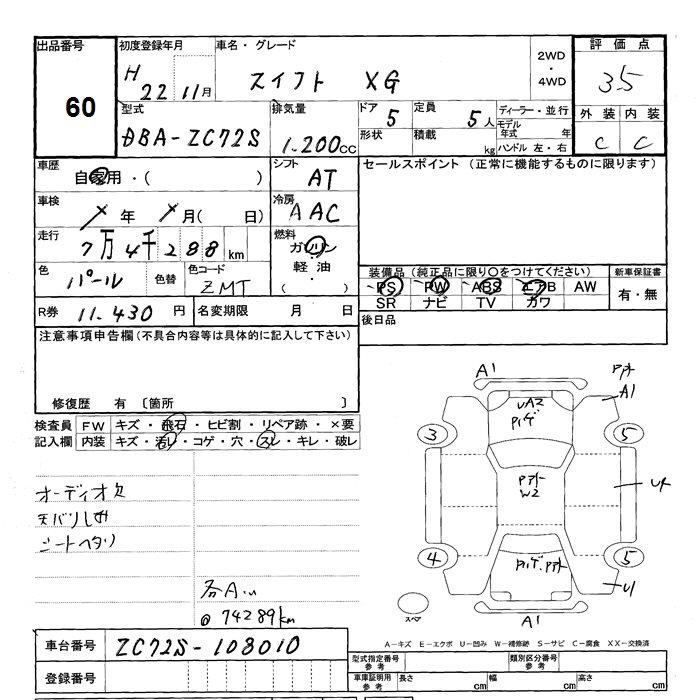 出品番号
60
初度登録年月
H 22 11月
車名・グレード
スイフト XG
2WD
・
4WD
評価点
3.5
外装 内装
C C
型式
DBA-ZC72S
排気量
1.200cc
ドア
5
形状
定員
5人
積載
kg
ディーラー・並行
モデル年式 年
ハンドル 左・右
車歴
自家用・( )
シフト
AT
セールスポイント (正常に機能するものに限ります)
車検
年 月( 日)
冷房
AAC
走行
7万4千288km
燃料
ガソリン
・
軽油
・
( )
色
パール
色替
色コード
ZMT
装備品 (純正品に限り○をつけてください)
PS PW ABS エアB AW
SR ナビ TV カワ
新車保証書
有・無
R券
11.430円
名変期限 月 日
後日品
注意事項申告欄 (不具合内容等は具体的に記入して下さい)
修復歴 有 〔箇所 〕
検査員記入欄
FW キズ・飛石・ヒビ割・リペア跡・×要
内装 キズ・汚れ・コゲ・穴・スレ・キレ・破レ
オーディオ欠
天バリしみ
シートヘタリ
各A.u
@74289km
A1
A1
UA2
3
5
W2
4
5
U1
A1
スペア
A-キズ E-エクボ U-凹み W-補修跡 S-サビ C-腐食 XX-交換済
車台番号
ZC72S-108010
登録番号
型式指定番号
参考
類別区分番号
参考
車庫証明用
参考
長さ cm
幅 cm
高さ cm